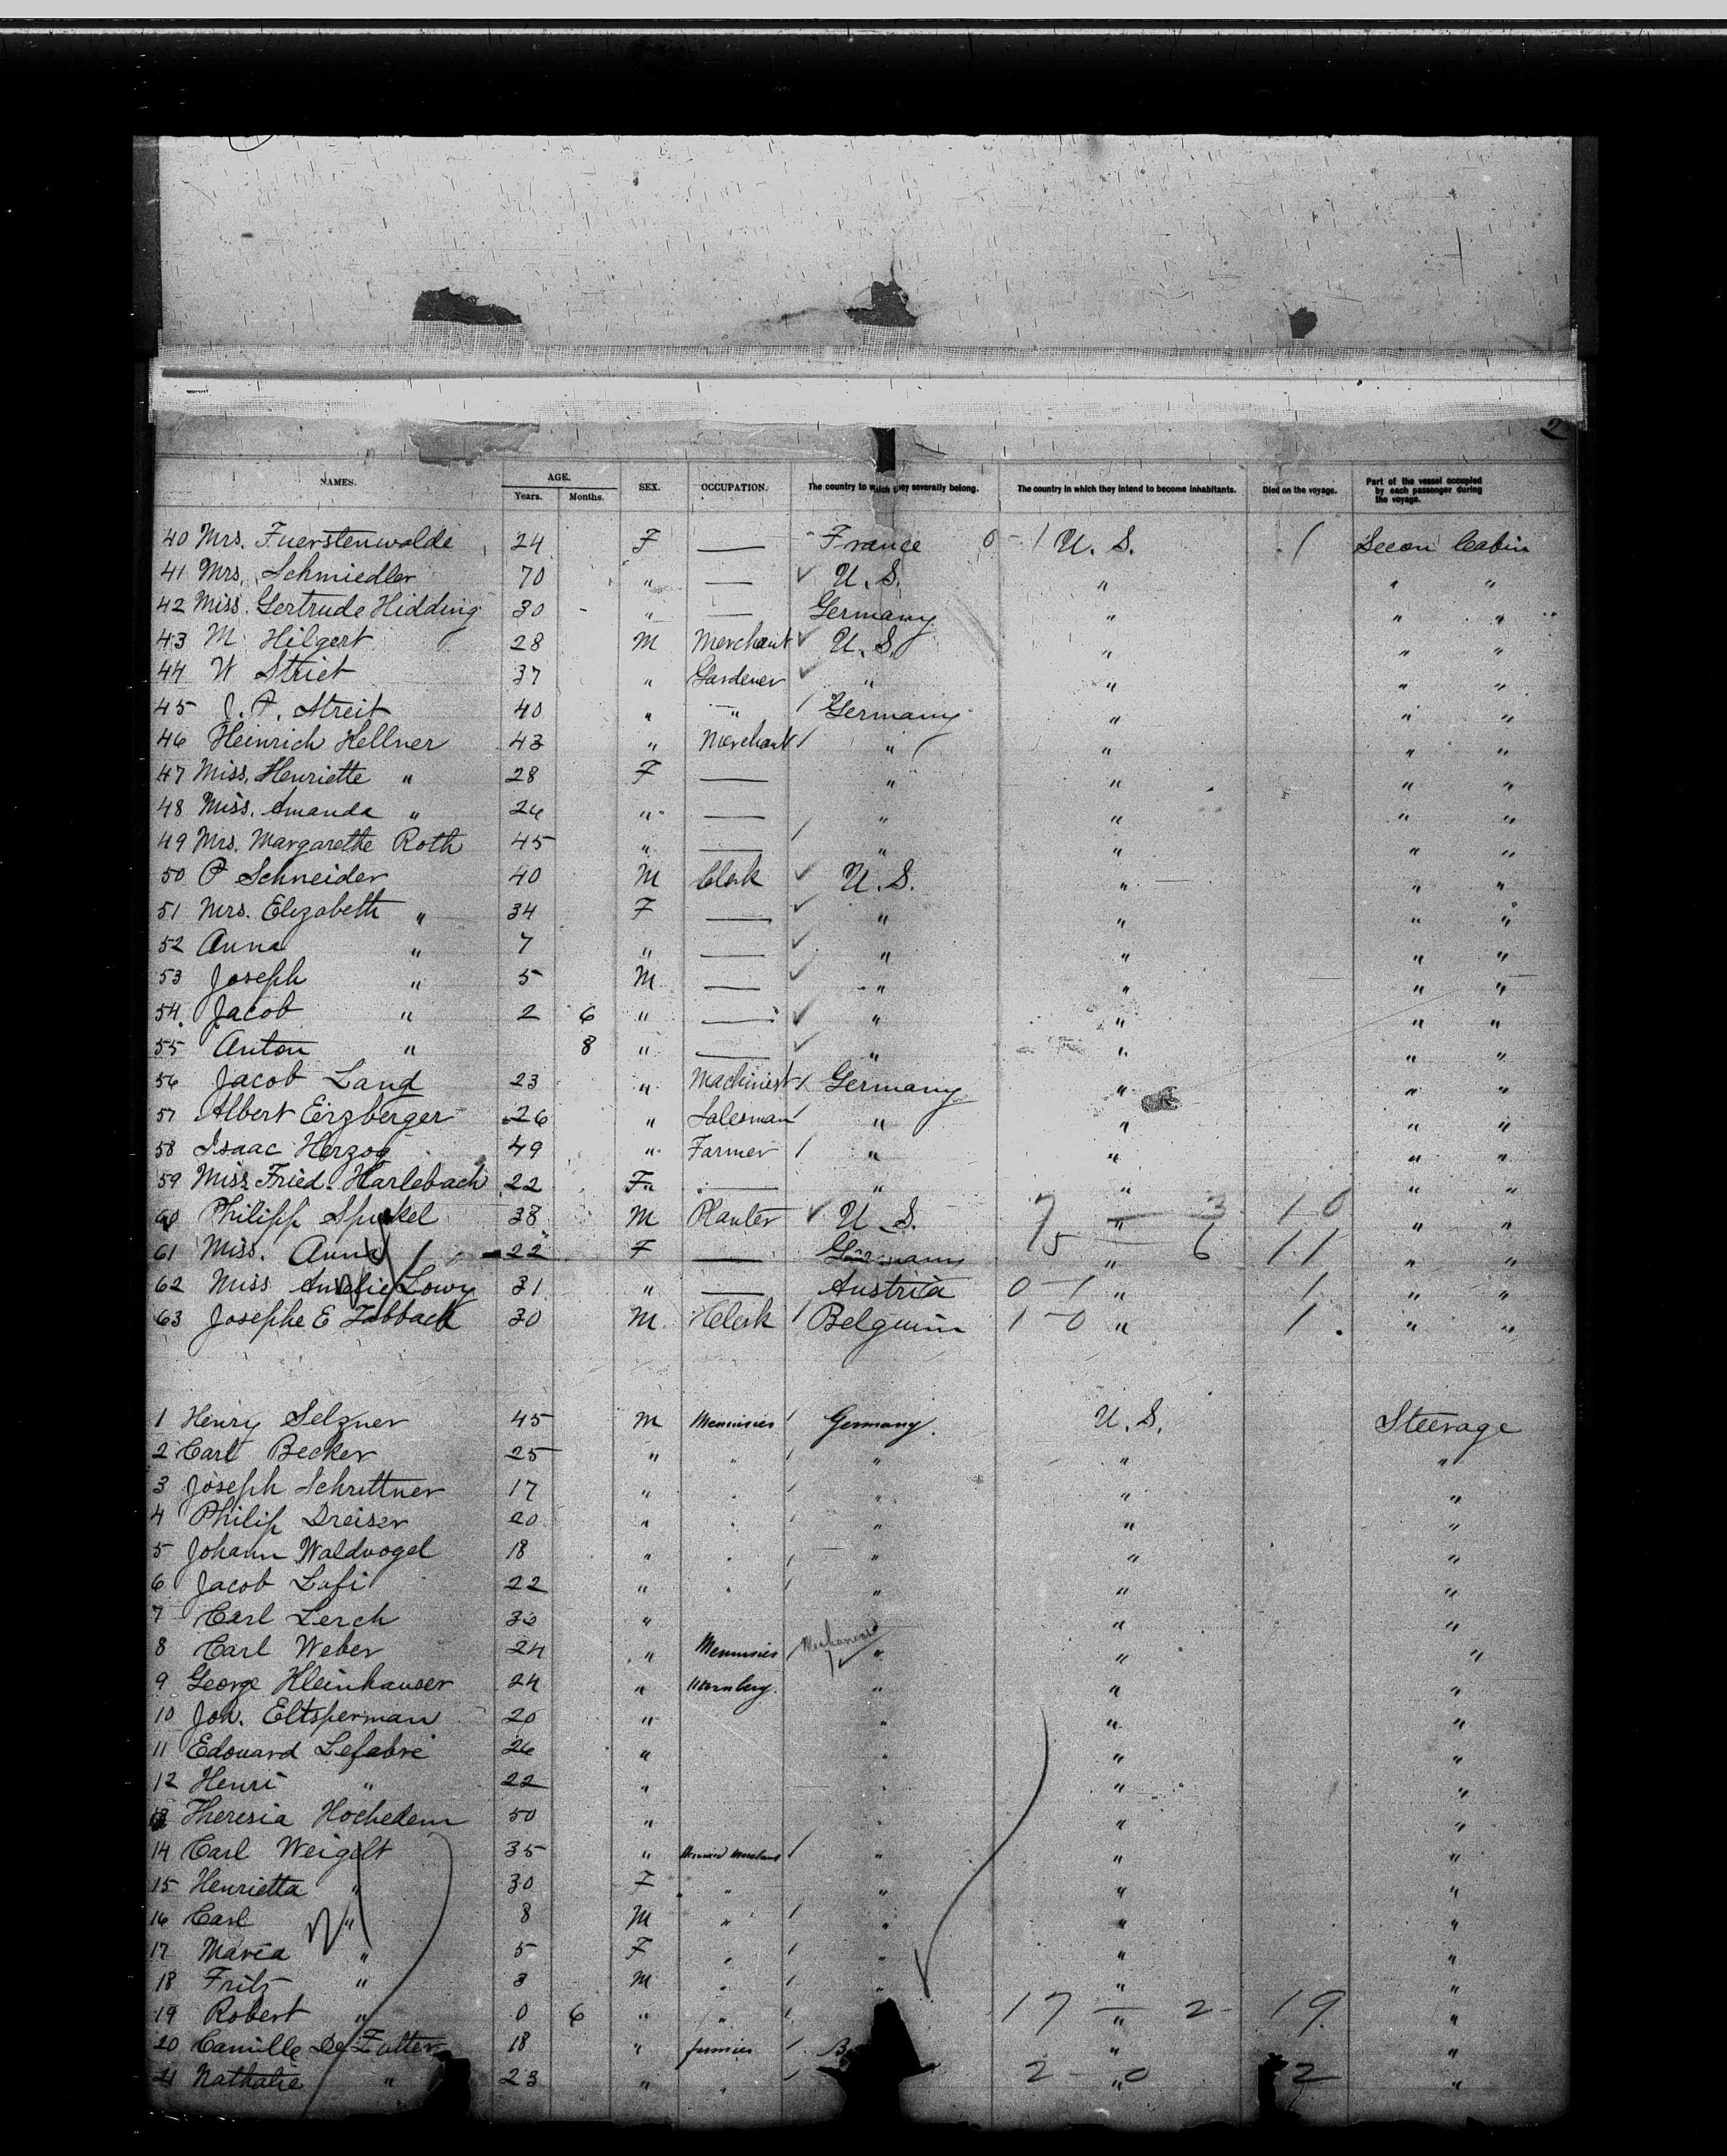 2
NAMES. AGE. SEX. OCCUPATION. The country to which they severally belong. The country in which they intend to become inhabitants. Died on the voyage. Part of the vessel occupied by each passenger during the voyage.
Years. Months.
40 Mrs. Fuerstenwalde 24 F — France 0 - 1 U. S. 1 Secon Cabin
41 Mrs. Schmiedler 70 " — ✓ U. S. " " "
42 Miss. Gertrude Hidding 30 " — Germany " " "
43 M Hilgert 28 M Merchant ✓ U. S. " " "
44 W Striet 37 " Gardener ✓ " " " "
45 J. P. Streit 40 " " / Germany " " "
46 Heinrich Kellner 43 " Merchant / " " " "
47 Miss. Henriette " 28 F — " " " "
48 Miss. Amanda " 26 " — " " " "
49 Mrs. Margarethe Roth 45 " — / " " " "
50 P Schneider 40 M Clerk ✓ U. S. " " "
51 Mrs. Elizabeth " 34 F — ✓ " " " "
52 Anna " 7 " — ✓ " " " "
53 Joseph " 5 M — ✓ " " " "
54 Jacob " 2 6 " — ✓ " " " "
55 Anton " 8 " — ✓ " " " "
56 Jacob Land 23 " Machinist / Germany " " "
57 Albert Eirzberger 26 " Salesman / " " " "
58 Isaac Herzog 49 " Farmer / " " " "
59 Miss Fried. Harlebach 22 F " — " " " "
60 Philipp 38 M Planter ✓ U. S. 7 — " 3 10 " "
61 Miss. Anna 22 F — Germany 15 — " 6 11 " "
62 Miss Amelie Lowy 31 " — Austria 0 - 1 " 1 " "
63 Josephe E 30 M Clerk / Belguim 1 - 0 " 1 " "
1 Henry Selzner 45 M / Germany. U. S. Steerage
2 Carl Becker 25 " " / " " "
3 Joseph Schrittner 17 " " / " " "
4 Philip Dreiser 20 " " / " " "
5 Johann Waldvogel 18 " " / " " "
6 Jacob Lofi 22 " " / " " "
7 Carl Lerch 30 " " "
8 Carl Weber 24 " / ✓ " " "
9 George Kleinhauser 24 " " " "
10 Joh. Eltsperman 20 " " " "
11 Edouard Lefabre 26 " " " "
12 Henri " 22 " " " "
13 Theresia Hochedem 50 " " " "
14 Carl Weigelt 35 " / " " "
15 Henrietta " 30 F " " " "
16 Carl " 8 M " / " " "
17 Maria " 5 F " / " " "
18 Fritz " 3 M " / " " "
19 Robert " 0 6 " " / 17 — " 2 19 "
20 Camille De 18 " / B " "
21 Nathalie " 23 " " / 2 - " 0 2 "